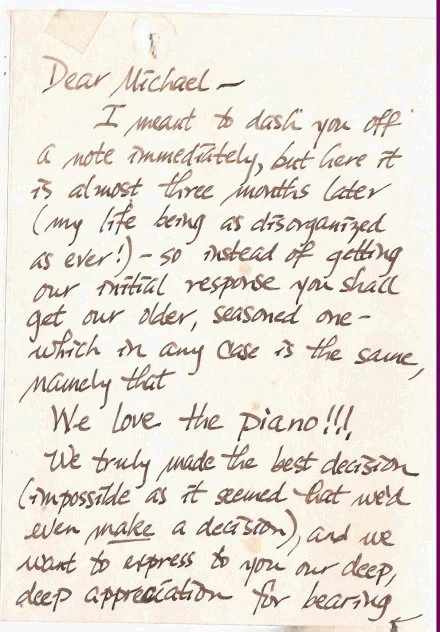 Dear Michael —
I meant to dash you off
a note immediately, but here it
is almost three months later
(my life being as disorganized
as ever!) – so instead of getting
our initial response you shall
get our older, seasoned one –
which in any case is the same,
namely that
We love the piano!!!
We truly made the best decision
(impossible as it seemed that we'd
even make a decision), and we
want to express to you our deep,
deep appreciation for bearing